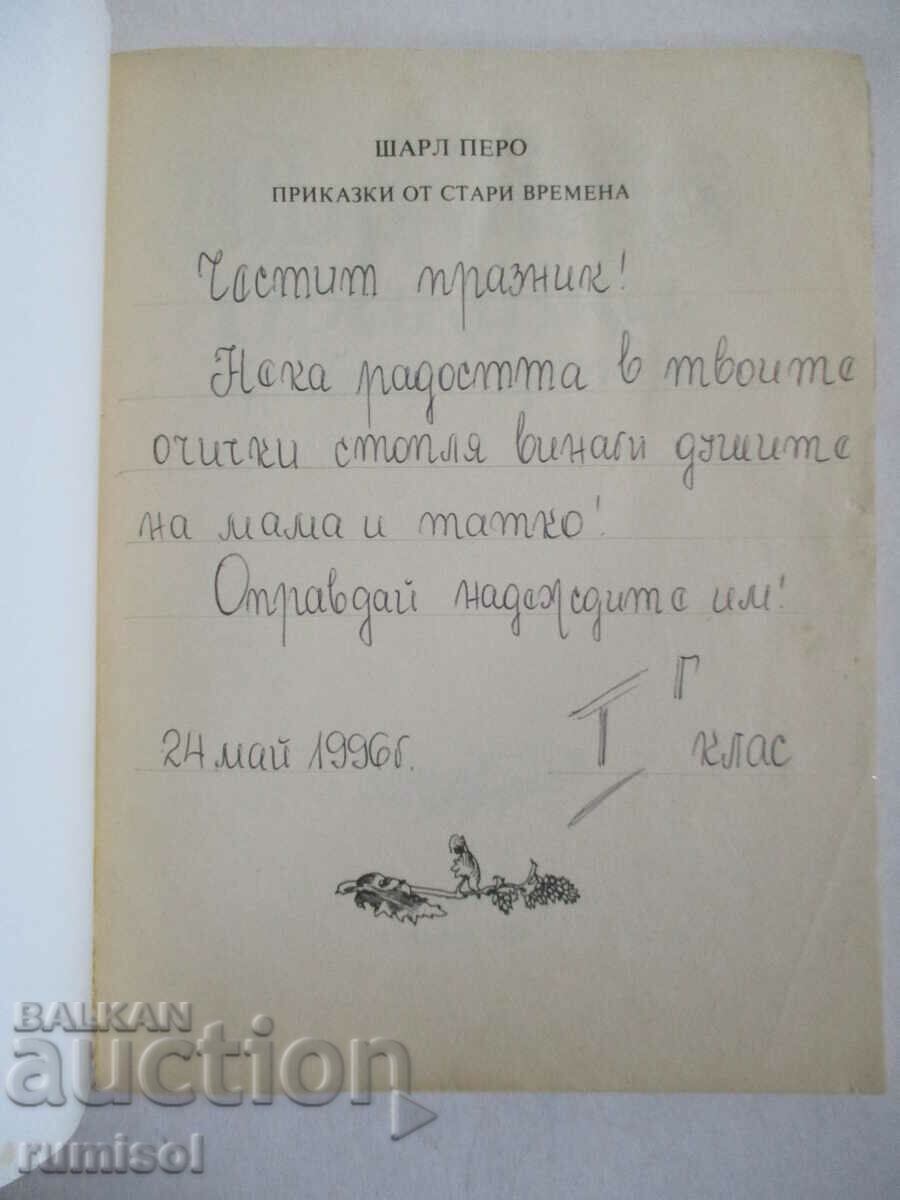 ШАРЛ ПЕРО
ПРИКАЗКИ ОТ СТАРИ ВРЕМЕНА
Честит празник!
Нека радостта в твоите
очички стопля винаги душите
на мама и татко!
Оправдай надеждите им!
24 май 1996г.
I Г клас
BALKAN
auction
rumisol